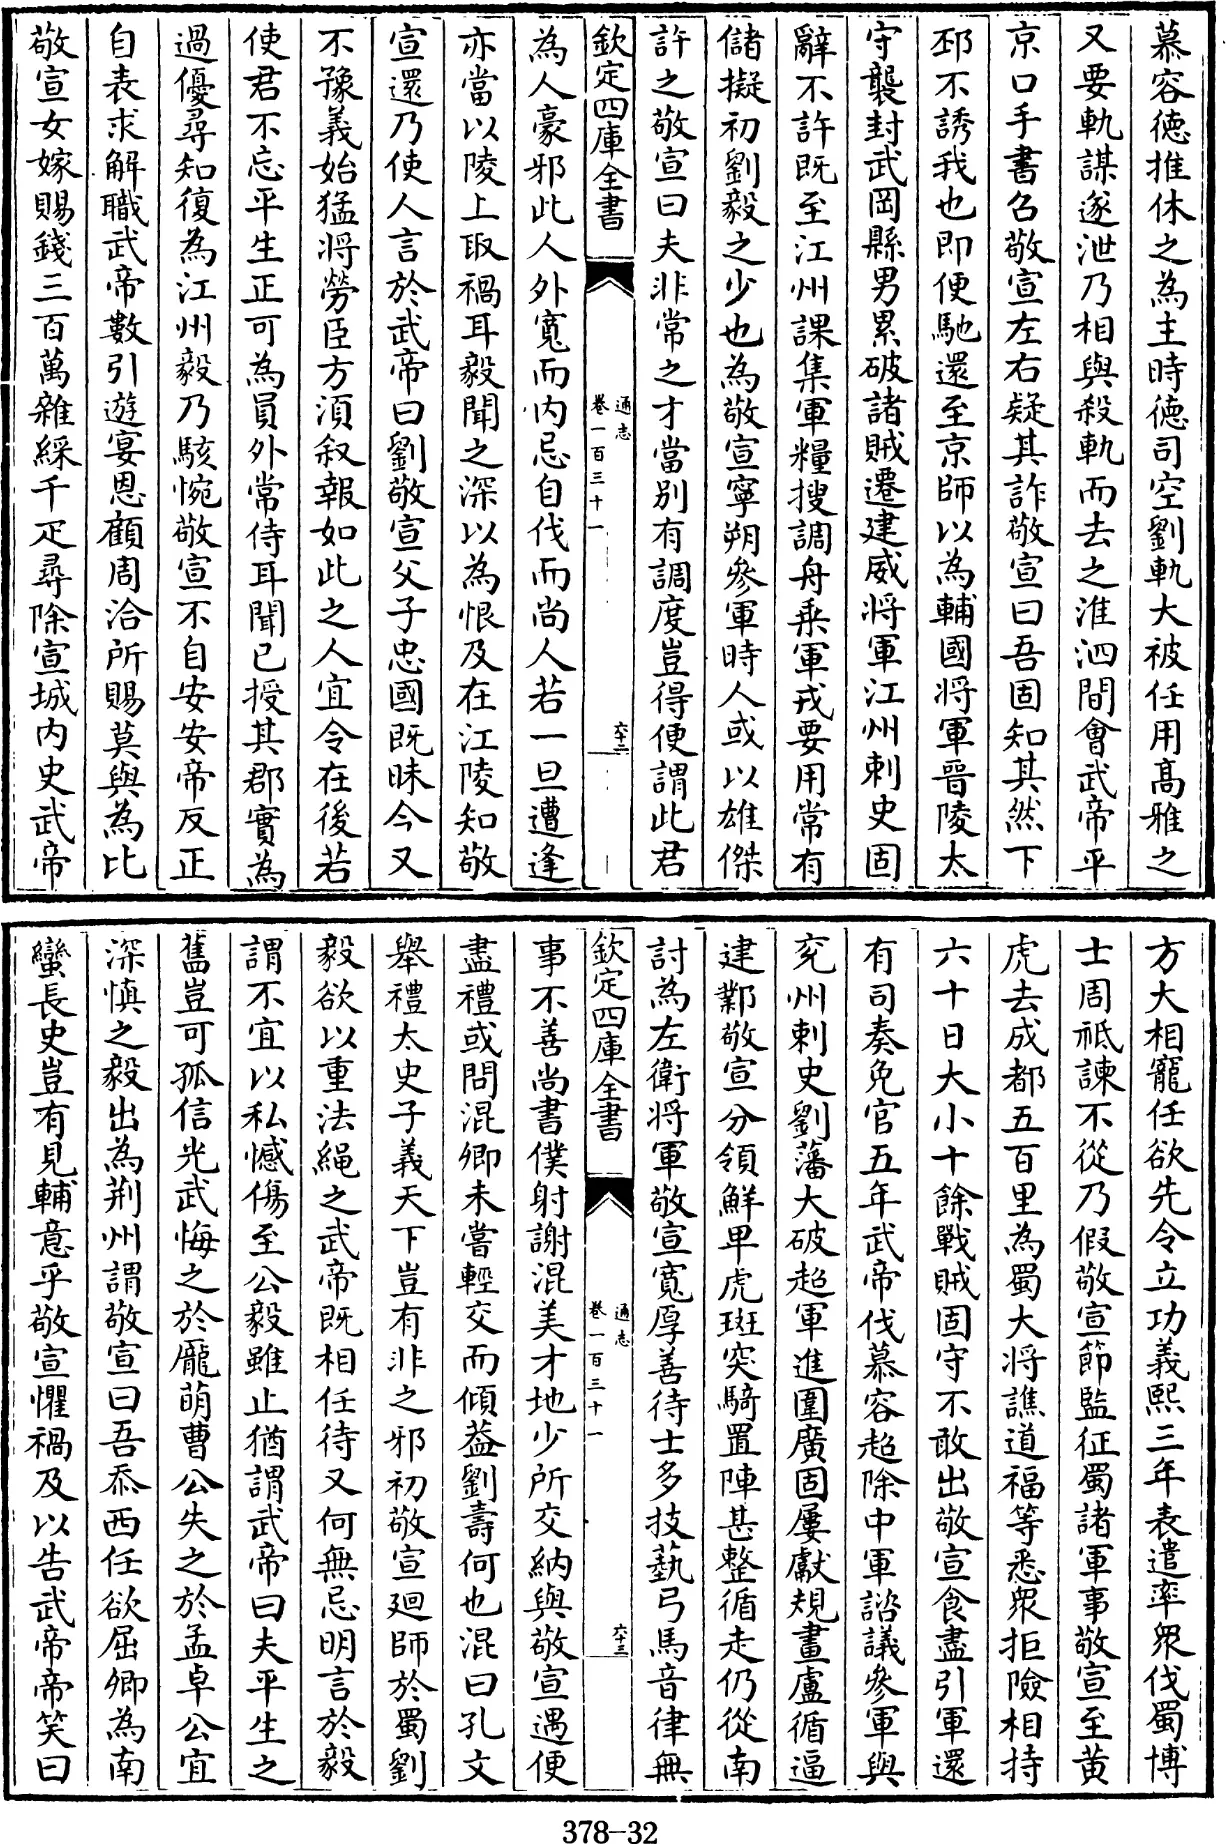 慕容徳推休之為主時徳司空劉軌大被任用髙雅之
又要軌謀遂泄乃相與殺軌而去之淮泗間會武帝平
京口手書召敬宣左右疑其詐敬宣曰吾固知其然下
邳不誘我也即便馳還至京師以為輔國將軍晉陵太
守襲封武岡縣男累破諸賊遷建威將軍江州刺史固
辭不許既至江州課集軍糧搜調舟乗軍戎要用常有
儲擬初劉毅之少也為敬宣寧朔參軍時人或以雄傑
許之敬宣曰夫非常之才當别有調度豈得便謂此君
欽定四庫全書
通志
卷一百三十一
六十二
為人豪邪此人外寛而内忌自伐而尚人若一旦遭逢
亦當以陵上取禍耳毅聞之深以為恨及在江陵知敬
宣還乃使人言於武帝曰劉敬宣父子忠國既昧今又
不豫義始猛將勞臣方湏叙報如此之人宜令在後若
使君不忘平生正可為員外常侍耳聞已授其郡實為
過優尋知復為江州毅乃駭惋敬宣不自安安帝反正
自表求解職武帝數引遊宴恩顧周洽所賜莫與為比
敬宣女嫁賜錢三百萬雜綵千疋尋除宣城内史武帝
方大相寵任欲先令立功義熙三年表遣率衆伐蜀博
士周祗諫不從乃假敬宣節監征蜀諸軍事敬宣至黄
虎去成都五百里為蜀大將譙道福等悉衆拒險相持
六十日大小十餘戰賊固守不敢出敬宣食盡引軍還
有司奏免官五年武帝伐慕容超除中軍諮議參軍與
兖州刺史劉藩大破超軍進圍廣固屢獻規畫盧循逼
建鄴敬宣分領鮮卑虎班突騎置陣甚整循走仍從南
討為左衛將軍敬宣寛厚善待士多技藝弓馬音律無
欽定四庫全書
通志
卷一百三十一
六十三
事不善尚書僕射謝混美才地少所交納與敬宣遇便
盡禮或問混卿未嘗輕交而傾葢劉壽何也混曰孔文
舉禮太史子義天下豈有非之邪初敬宣廻師於蜀劉
毅欲以重法繩之武帝既相任待又何無忌明言於毅
謂不宜以私憾傷至公毅雖止猶謂武帝曰夫平生之
舊豈可孤信光武悔之於龎萌曹公失之於孟卓公宜
深慎之毅出為荆州謂敬宣曰吾忝西任欲屈卿為南
蠻長史豈有見輔意乎敬宣懼禍及以告武帝帝笑曰
378-32